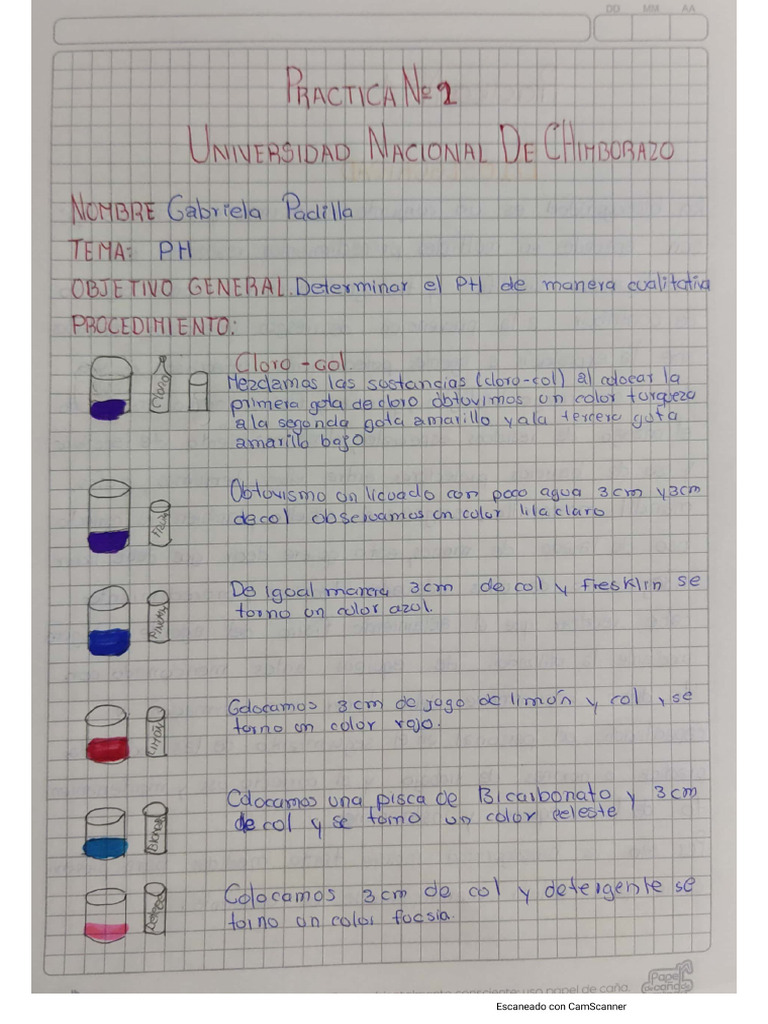 DD MM AA
PRACTICA Nº 2
UNIVERSIDAD NACIONAL DE CHIMBORAZO
NOMBRE Gabriela Padilla
TEMA: PH
OBJETIVO GENERAL. Determinar el PH de manera cualitativa
PROCEDIMIENTO:
Cloro
Cloro - col.
Mezclamos las sustancias (cloro-col) al colocar la
primera gota de cloro obtuvimos un color turqueza
a la segonda gota amarillo y ala tercera gota
amarillo bajo
Obtuvismo un licuado con poco agua 3cm y 3cm
de col observamos un color lila claro
De igual manera 3cm de col y fresklin se
torno un color azul.
Limón
Colocamos 3 cm de jogo de limón y col, se
torno un color rojo.
Colocamos una pisca de Bicarbonato y 3 cm
de col y se torno un color celeste
Colocamos 3 cm de col y detergente se
torno un color fucsia.
uso papel de caña.
Escaneado con CamScanner